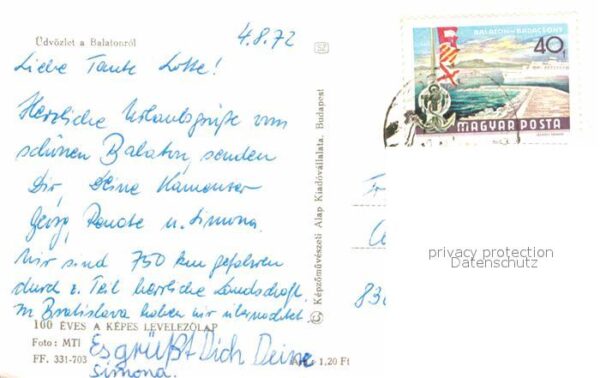 Üdvözlet a Balatonról
4.8.72
Liebe Tante Lotte!
Herzliche Urlaubsgrüße vom
schönen Balaton, senden
Dir, Deine Kamenzer
Georg, Renate u. Simona.
Wir sind 750 km gefahren
durch z. Teil herrliche Landschaft.
In Bratislava haben wir übernachtet.
100 ÉVES A KÉPES LEVELEZŐLAP
Foto: MTI
FF. 331-703
Ára: 1,20 Ft
Es grüßt Dich Deine
Simona.
Képzőművészeti Alap Kiadóvállalata, Budapest
BALATON - BADACSONY
40f
MAGYAR POSTA
Fr
830
privacy protection
Datenschutz